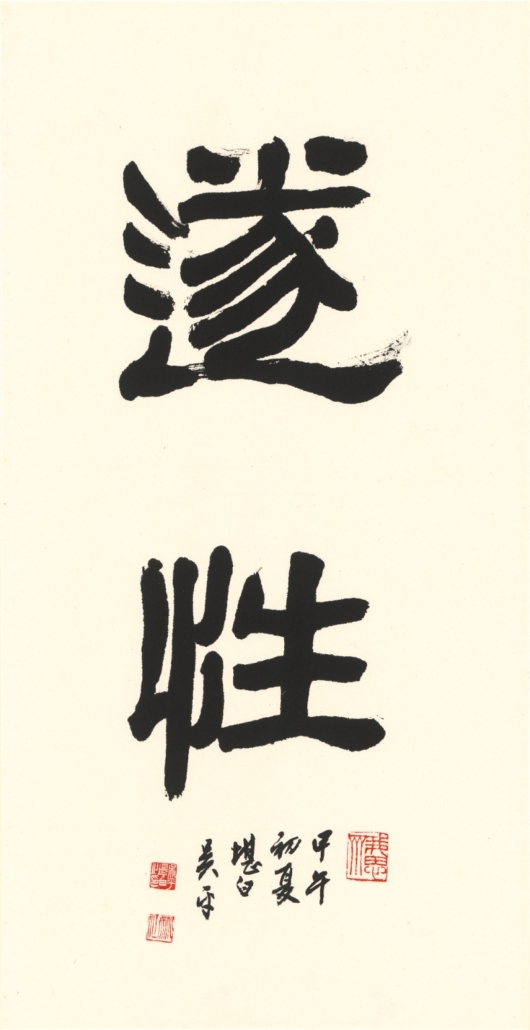 遂性
甲午
初夏
堪白
吳平